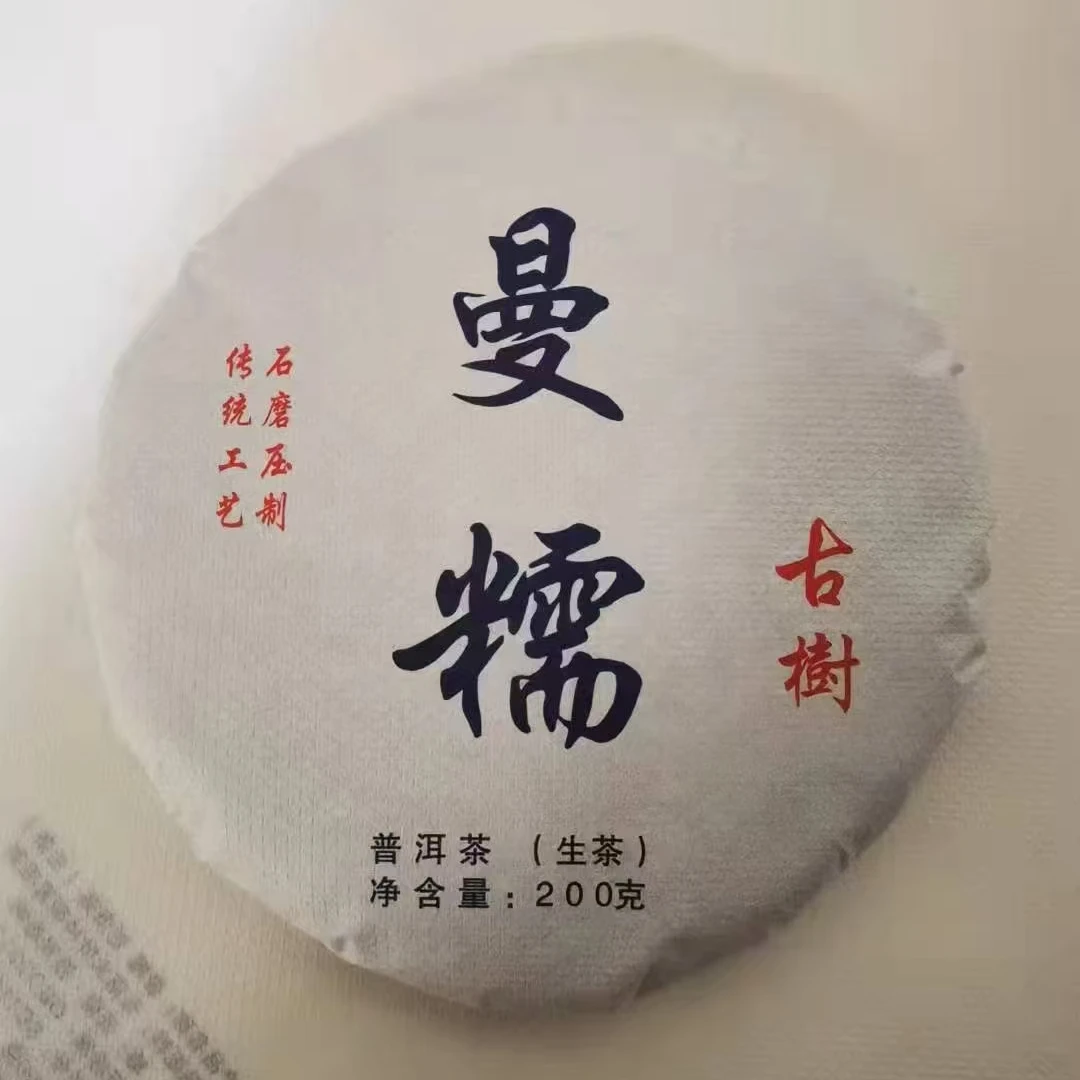 曼糯
古樹
石磨压制
传统工艺
普洱茶（生茶）
净含量：200克